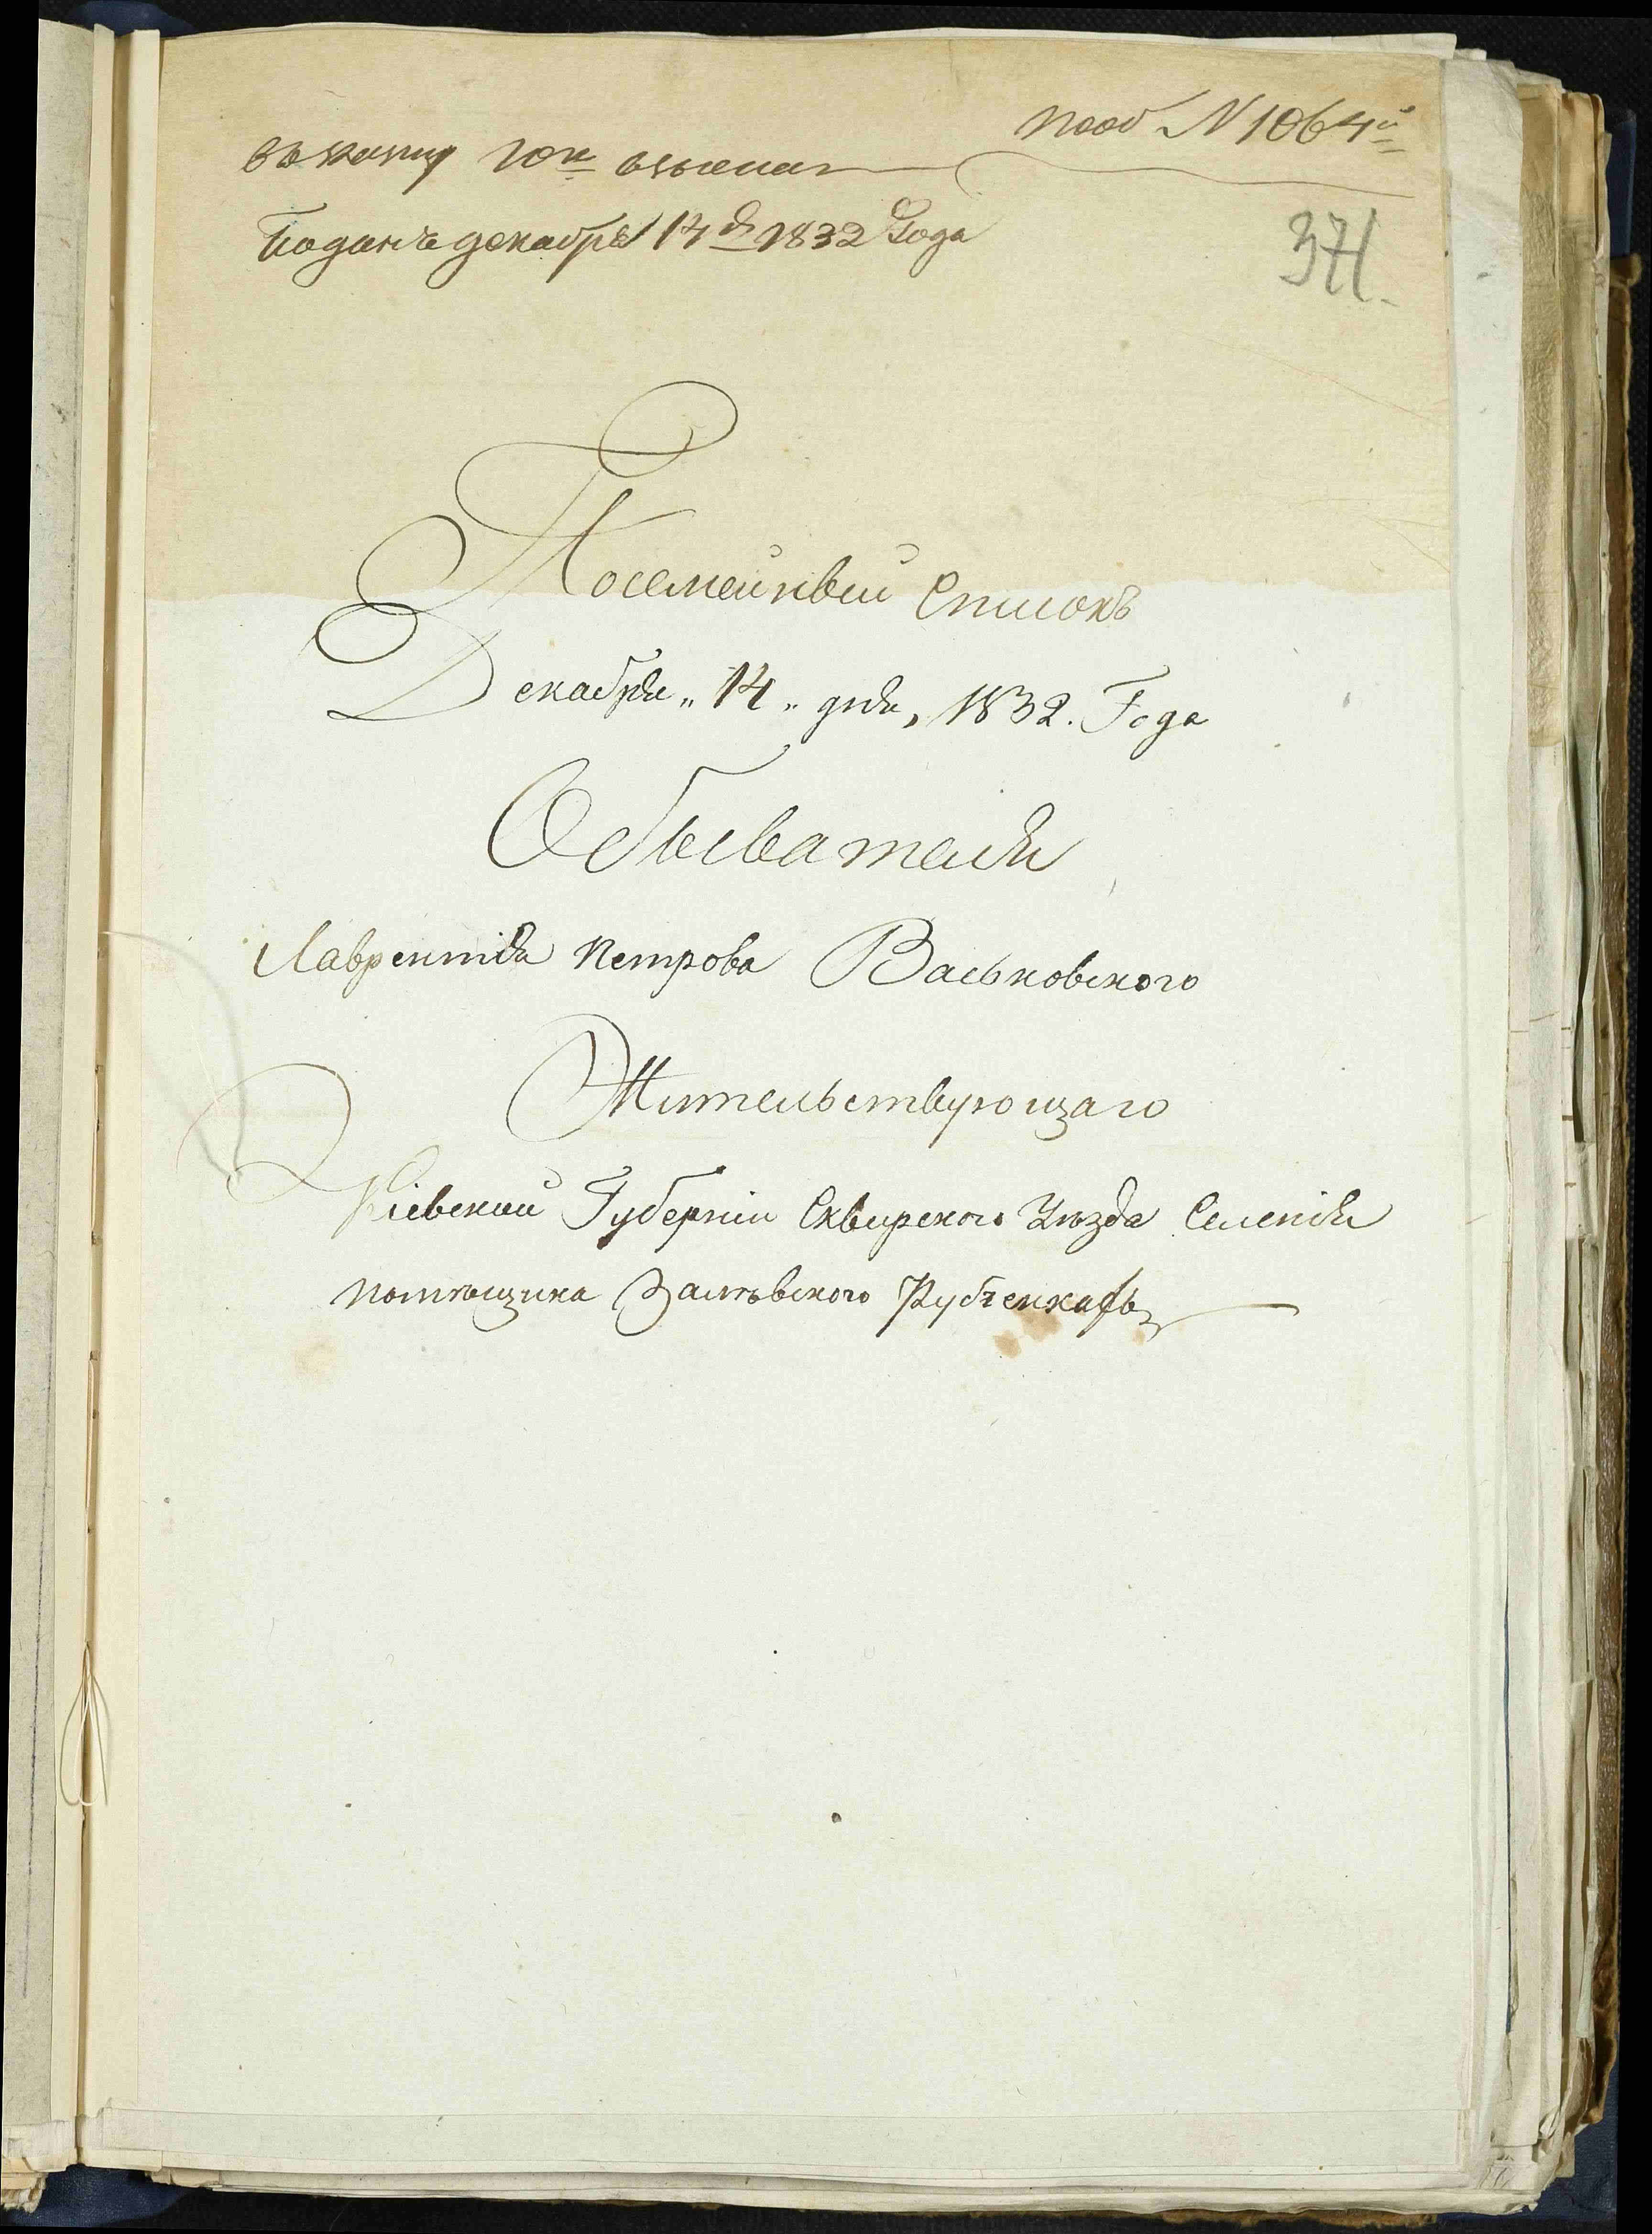 подъ N 1064й
въ книгу
Поданъ декабря 14 д 1832 Года
371.
Посемейный Списокъ
Декабря „ 14 „ дня, 1832. Года
Обывателя
Лаврентія Петрова Васьковского
Жительствующаго
Кіевской Губерніи Сквирского Уѣзда Селенія
помѣщика Залѣвского Рубченкахъ